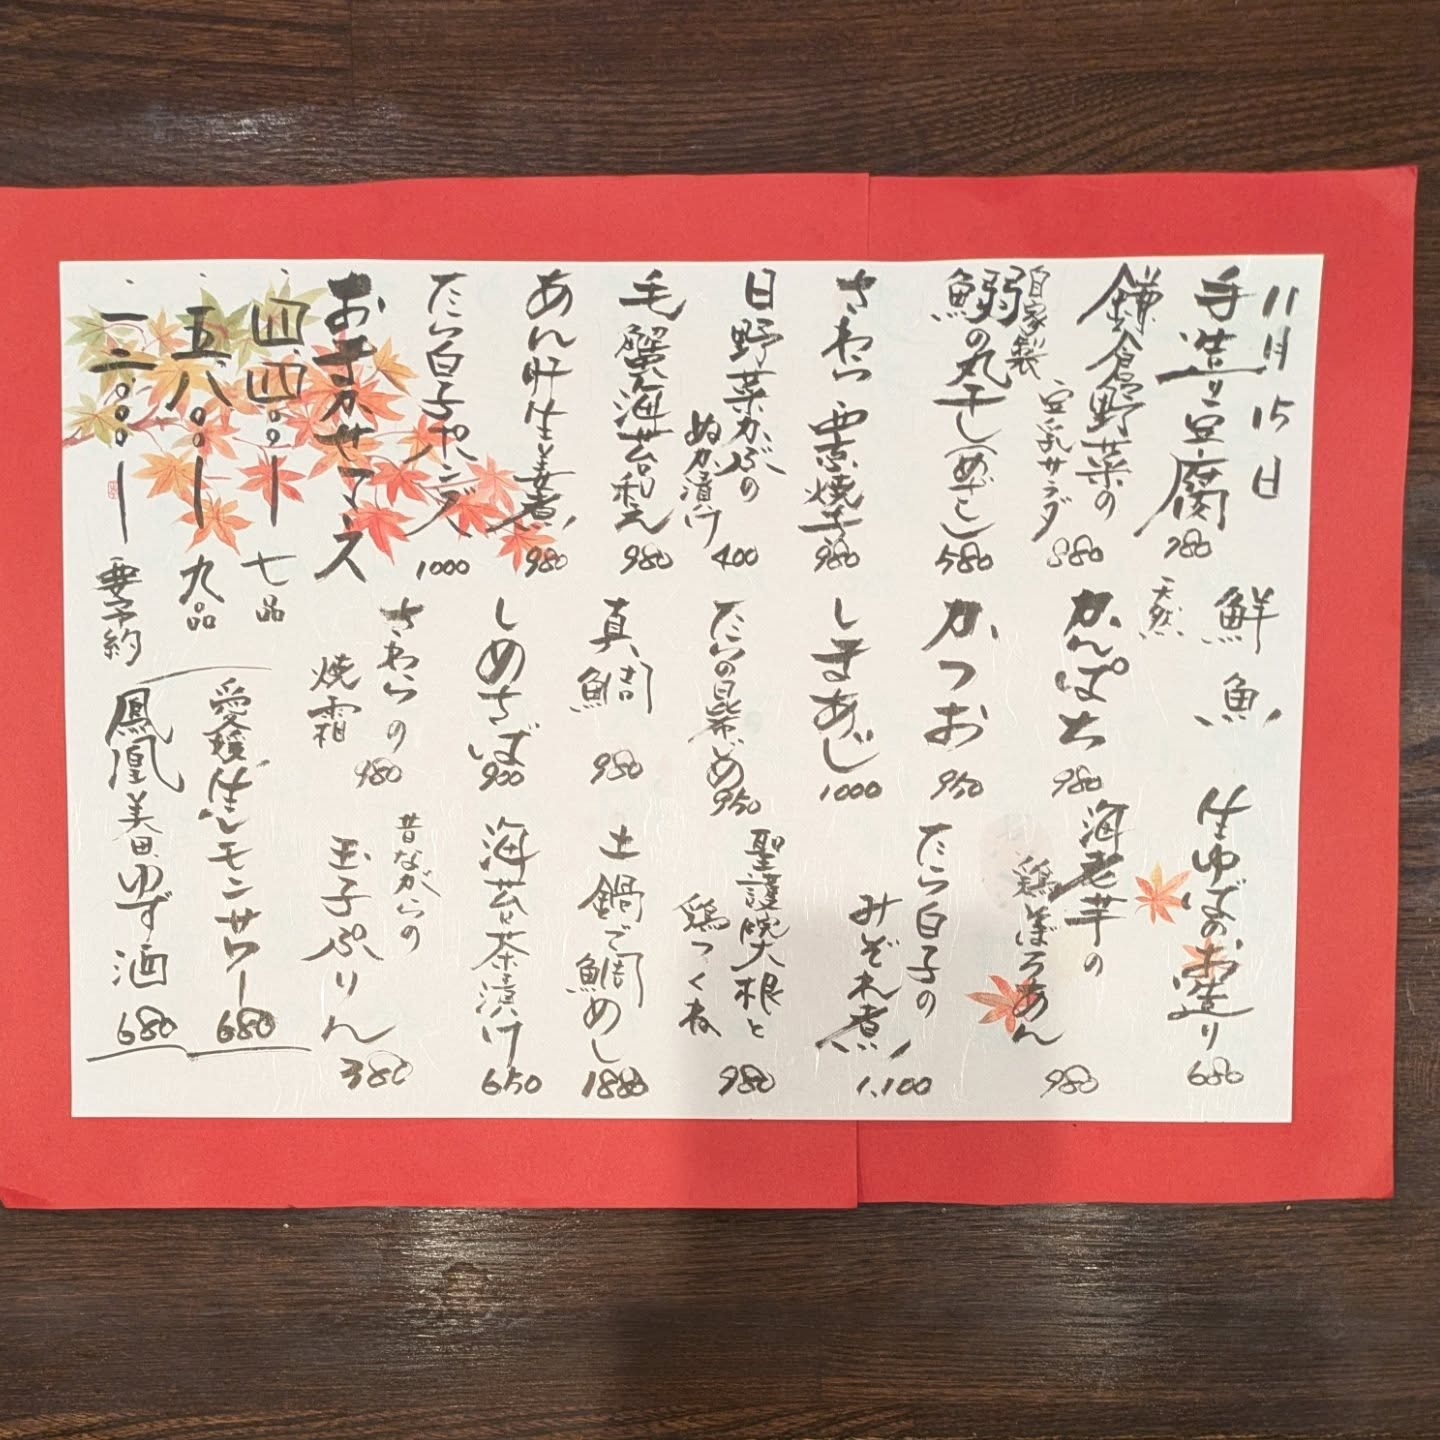 11月15日
手造り豆腐
780
鎌倉野菜の
豆乳サラダ
880
自家製
鰯の丸干し(めざし)
580
さわら西京焼き
980
日野菜かぶの
ぬか漬け
400
毛蟹海苔和え
980
あん肝生姜煮
980
たら白子ポン酢
1000
おまかせコース
四、四〇〇ー 七品
五、八〇〇ー 九品
一二、〇〇〇ー 要予約
鮮魚
天然
かんぱち
980
かつお
950
しまあじ
1000
たらの昆布じめ
950
真鯛
980
しめさば
900
さわらの
焼霜
980
生ゆばのお造り
680
海老芋の
鶏そぼろあん
980
たら白子の
みぞれ煮
1,100
聖護院大根と
鶏つくね
980
土鍋で鯛めし
1880
海苔茶漬け
650
昔ながらの
玉子ぷりん
380
愛媛生レモンサワー
680
鳳凰美田ゆず酒
680